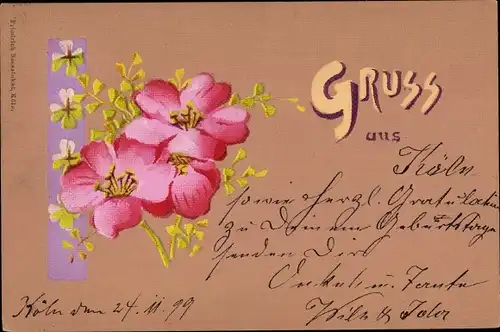 GRUSS
aus
Köln
sowie herzl. Gratulation
zu Deinem Geburtstage
senden Dir
Onkel u. Tante
Wilh & Ida
Köln den 24.11.99
Friedrich Köln